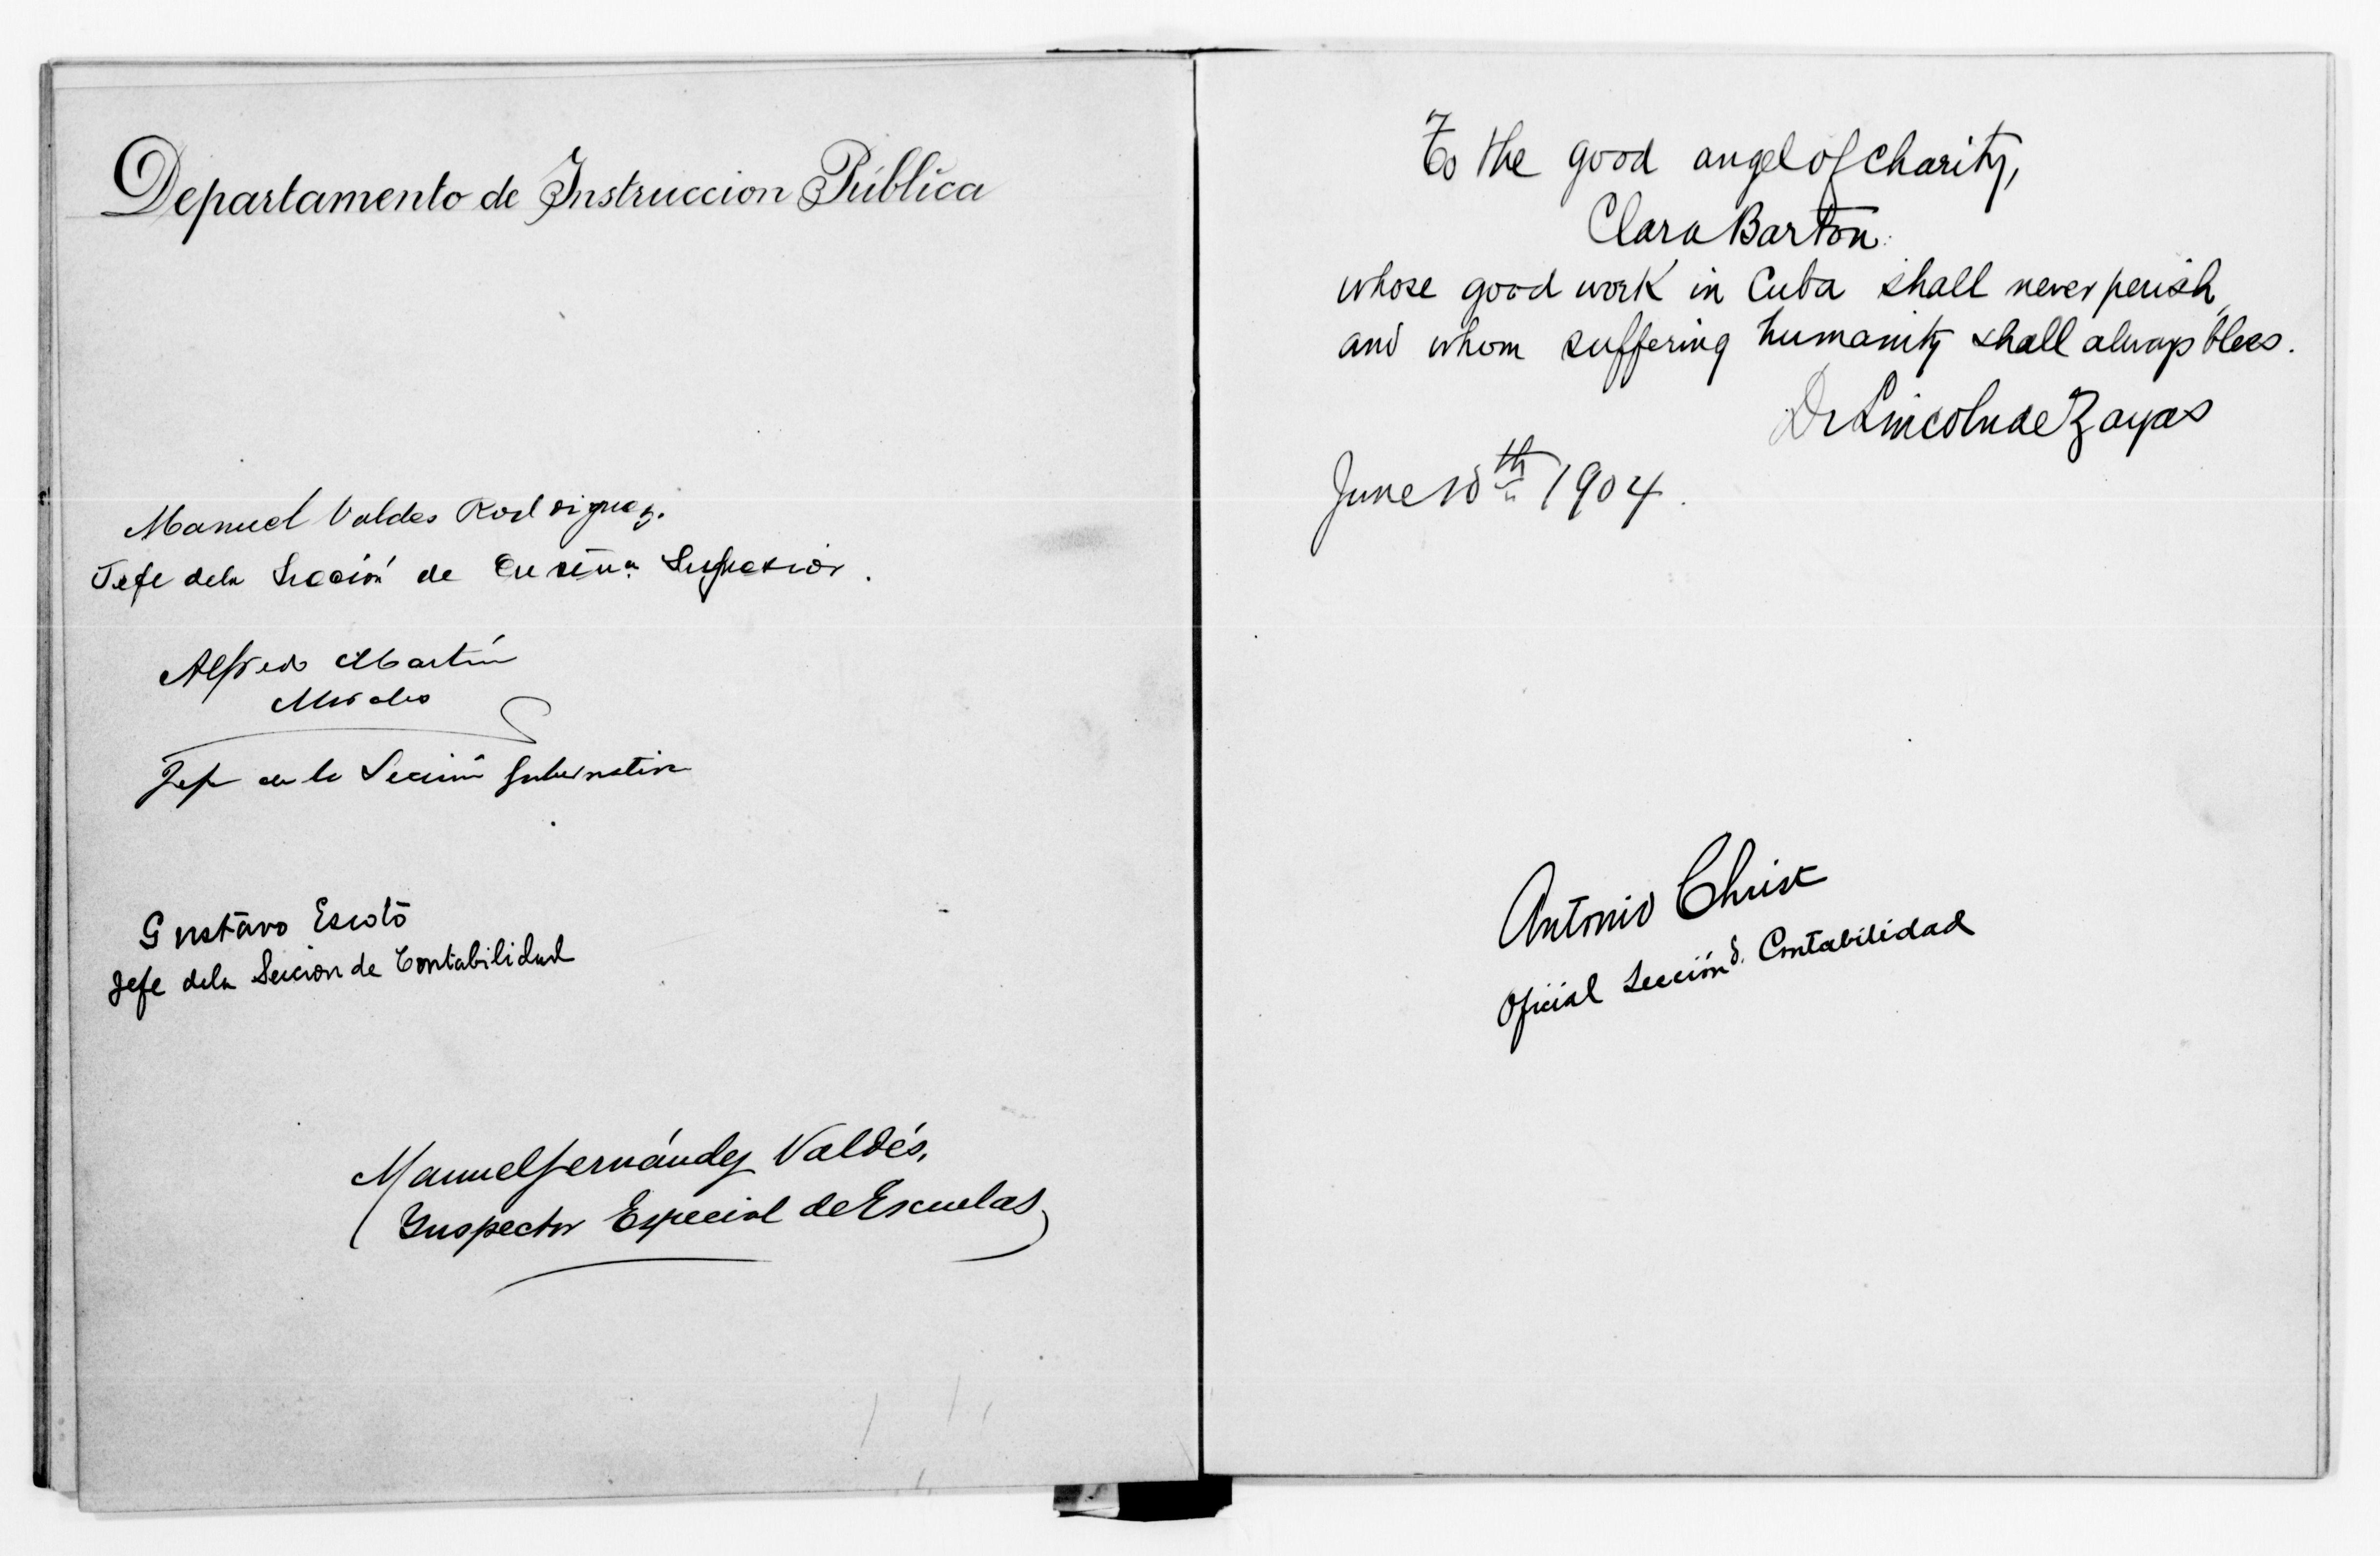 Departamento de Instruccion Pública
Manuel Valdes Rodriguez.
Jefe dela Sección de Enseña Superior.
Alfredo Martín
Morales
Jefe de la Sección Gubernativa
Gustavo Escoto
Jefe dela Seccion de Contabilidad
Manuel Fernández Valdés,
Inspector Especial de Escuelas
To the good angel of charity,
Clara Barton
whose good work in Cuba shall never perish,
and whom suffering humanity shall always bless.
Dr Lincoln de Zayas
June 18th 1904.
Antonio Christ
Oficial Sección d. Contabilidad